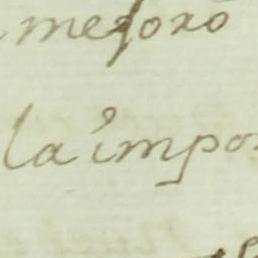 mejoro
la impo